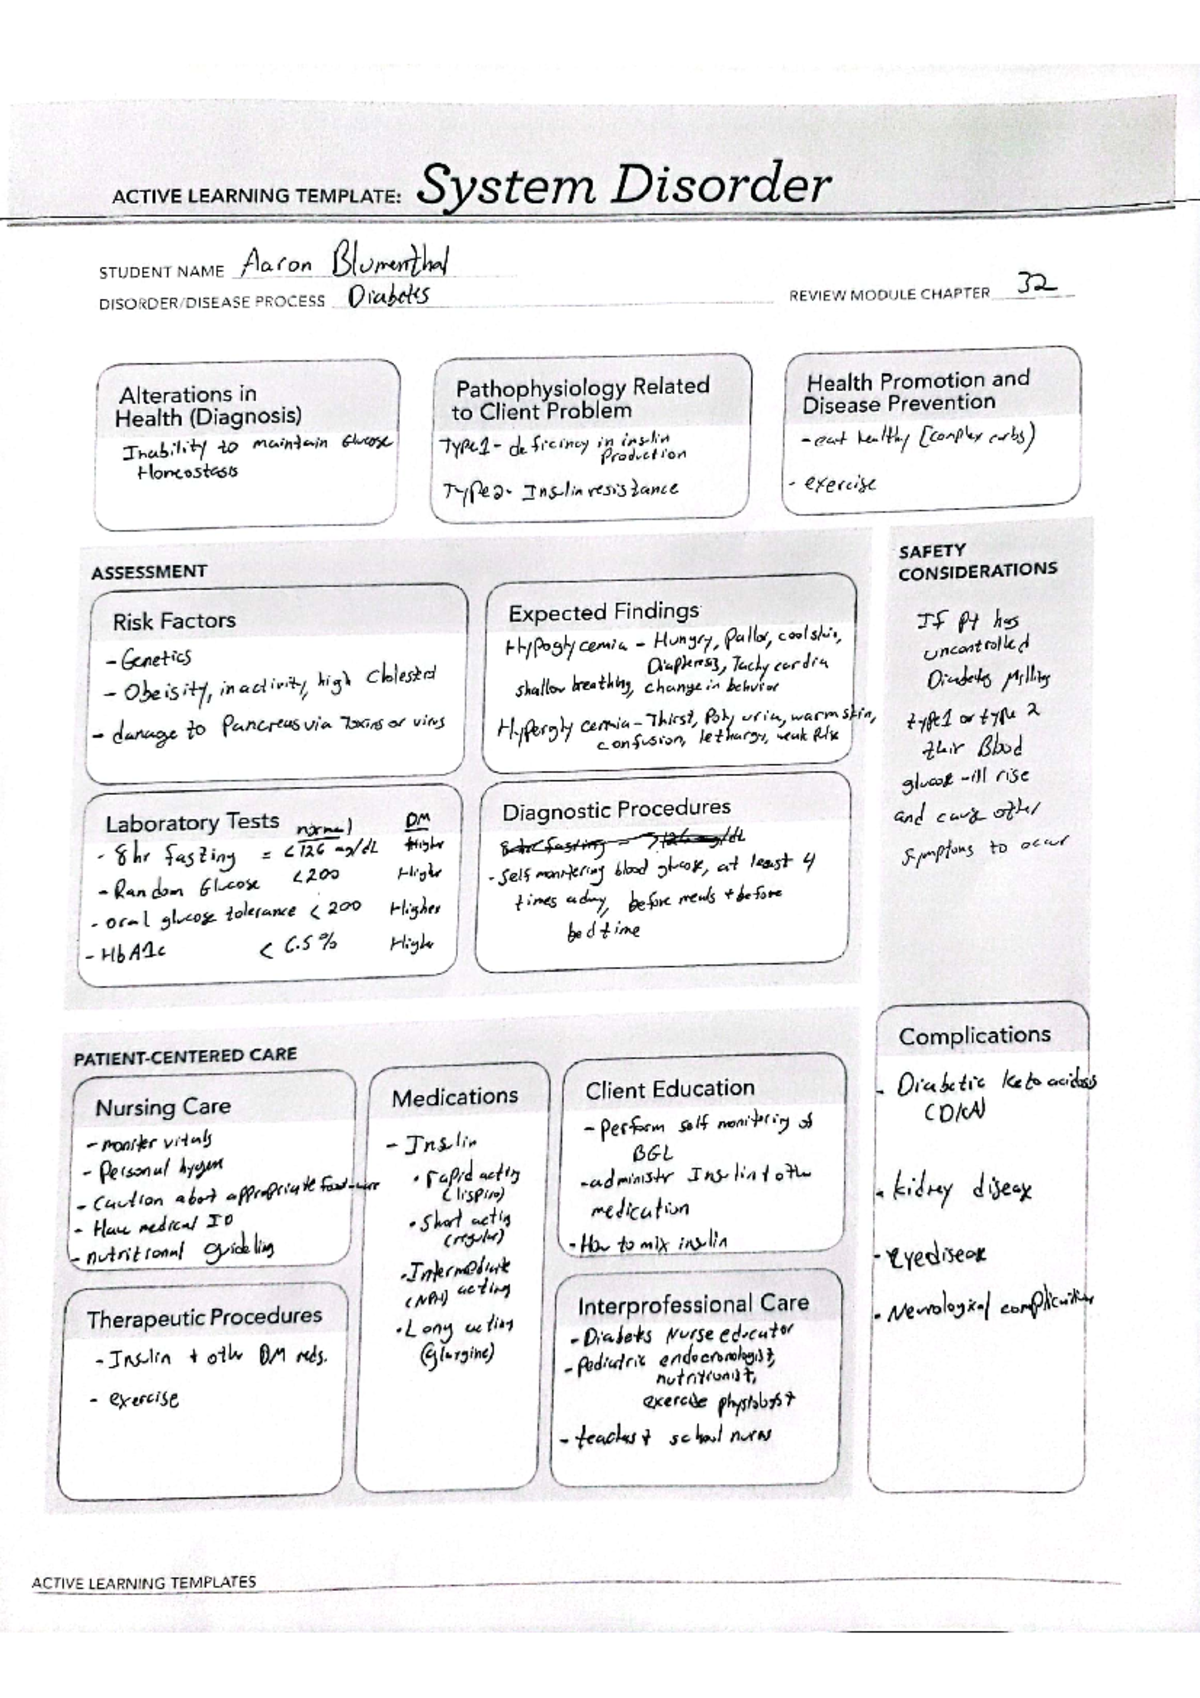 ACTIVE LEARNING TEMPLATE: System Disorder
STUDENT NAME Aaron Blumenthal
DISORDER/DISEASE PROCESS Diabetes
REVIEW MODULE CHAPTER 32
Alterations in
Health (Diagnosis)
Inability to maintain Glucose
Homeostasis
Pathophysiology Related
to Client Problem
Type 1- deficincy in insulin
Production
Type 2- Insulin resistance
Health Promotion and
Disease Prevention
- eat healthy (complex carbs)
- exercise
ASSESSMENT
Risk Factors
- Genetics
- Obeisity, inactivity, high Cholestrol
- damage to Pancreas via Toxins or virus
Expected Findings
Hypoglycemia - Hungry, Pallor, cool skin,
Diapheresis, Tachycardia
shallow breathing, change in behavior
Hyperglycemia - Thirst, Polyuria, warm skin,
confusion, lethargy, weak Pulse
Laboratory Tests normal DM
- 8hr fasting = <126 mg/dL Higher
- Random Glucose <200 Higher
- oral glucose tolerance <200 Higher
- HbA1c < 6.5% Higher
Diagnostic Procedures
8hr fasting - >126mg/dL
- Self monitering blood glucose, at least 4
times a day, before meals + before
bedtime
SAFETY
CONSIDERATIONS
If Pt has
uncontrolled
Diabetes Mellitus
type 1 or type 2
their Blood
glucose will rise
and cause other
symptoms to occur
PATIENT-CENTERED CARE
Nursing Care
- moniter vitals
- Personal hygene
- Caution about appropriate foot-ware
- Have medical ID
- nutritional guideling
Medications
- Insulin
• rapid acting
(lispro)
• Short acting
(regular)
• Intermediate
(NPH) acting
• Long acting
(Glargine)
Client Education
- Perform self monitering of
BGL
- administer Insulin + other
medication
- How to mix insulin
Therapeutic Procedures
- Insulin + other DM meds.
- exercise
Interprofessional Care
- Diabetes Nurse educator
- Pediatric endocronologist,
nutritionist,
exercise physiologist
- teachers + school nurse
Complications
- Diabetic Keto acidosis
(DKA)
- kidney disease
- eye disease
- Neurological complications
ACTIVE LEARNING TEMPLATES